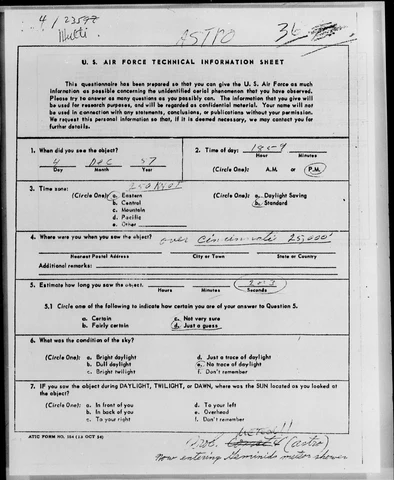 4 / 23577
Multi
ASTRO
36
U. S. AIR FORCE TECHNICAL INFORMATION SHEET
This questionnaire has been prepared so that you can give the U. S. Air Force as much
information as possible concerning the unidentified aerial phenomenon that you have observed.
Please try to answer as many questions as you possibly can. The information that you give will
be used for research purposes, and will be regarded as confidential material. Your name will not
be used in connection with any statements, conclusions, or publications without your permission.
We request this personal information so that, if it is deemed necessary, we may contact you for
further details.
1. When did you see the object?
4 Dec 57
Day Month Year
2. Time of day:
Hour Minutes
(Circle One): A.M. or P.M.
3. Time zone:
(Circle One): a. Eastern
b. Central
c. Mountain
d. Pacific
e. Other
(Circle One): a. Daylight Saving
b. Standard
4. Where were you when you saw the object? over Cincinnati 25,000'
Nearest Postal Address City or Town State or Country
Additional remarks:
5. Estimate how long you saw the object. 2 or 3
Hours Minutes Seconds
5.1 Circle one of the following to indicate how certain you are of your answer to Question 5.
a. Certain
b. Fairly certain
c. Not very sure
d. Just a guess
6. What was the condition of the sky?
(Circle One): a. Bright daylight
b. Dull daylight
c. Bright twilight
d. Just a trace of daylight
e. No trace of daylight
f. Don't remember
7. IF you saw the object during DAYLIGHT, TWILIGHT, or DAWN, where was the SUN located as you looked at
the object?
(Circle One): a. In front of you
b. In back of you
c. To your right
d. To your left
e. Overhead
f. Don't remember
ATIC FORM NO. 164 (13 OCT 54)
METEOR!!
Prob. Comet (astro)
Now entering Geminids meteor shower